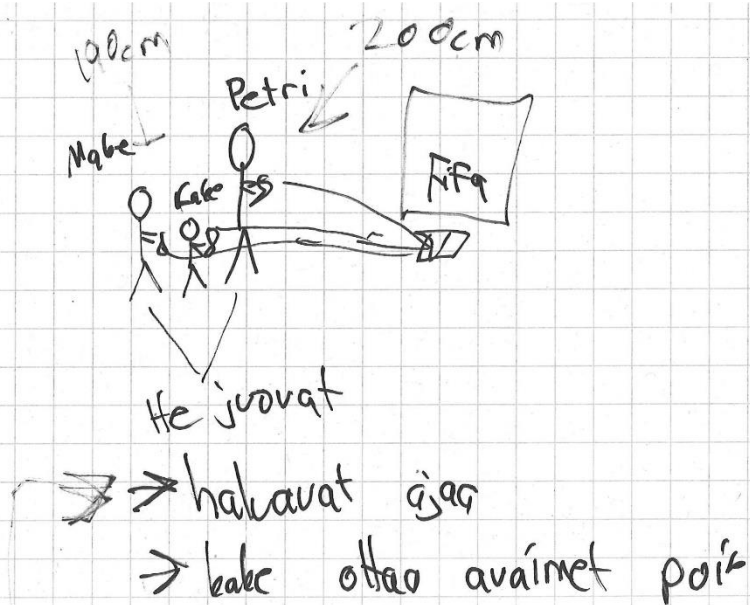 190cm
200cm
Petri
Make
Kake
Fifa
He juovat
→ haluavat ajaa
→ kake ottaa avaimet pois